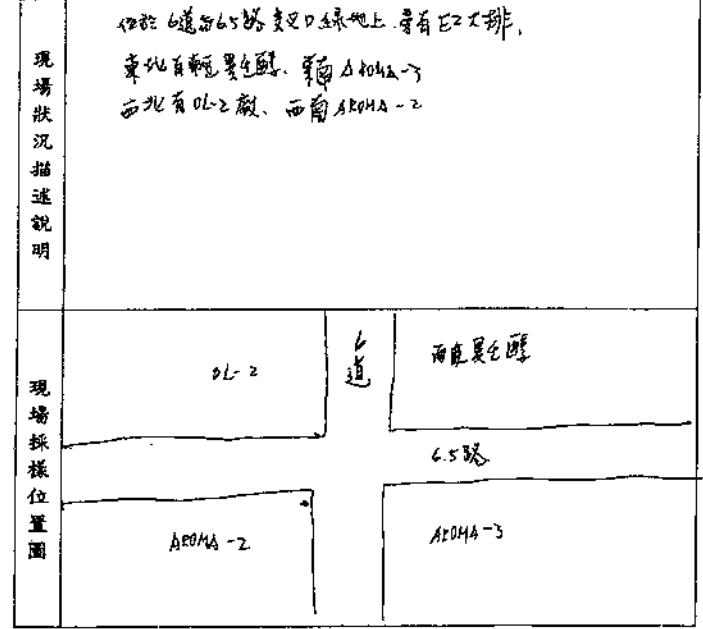 現場狀況描述說明
位於 6道與6.5路交叉口綠地上,旁有E2大排,
東北有 異壬醇、東南 AROMA-3
西北有 OL-2 廠、西南 AROMA-2
現場採樣位置圖
OL-2
6道
異壬醇
6.5路
AROMA-2
AROMA-3